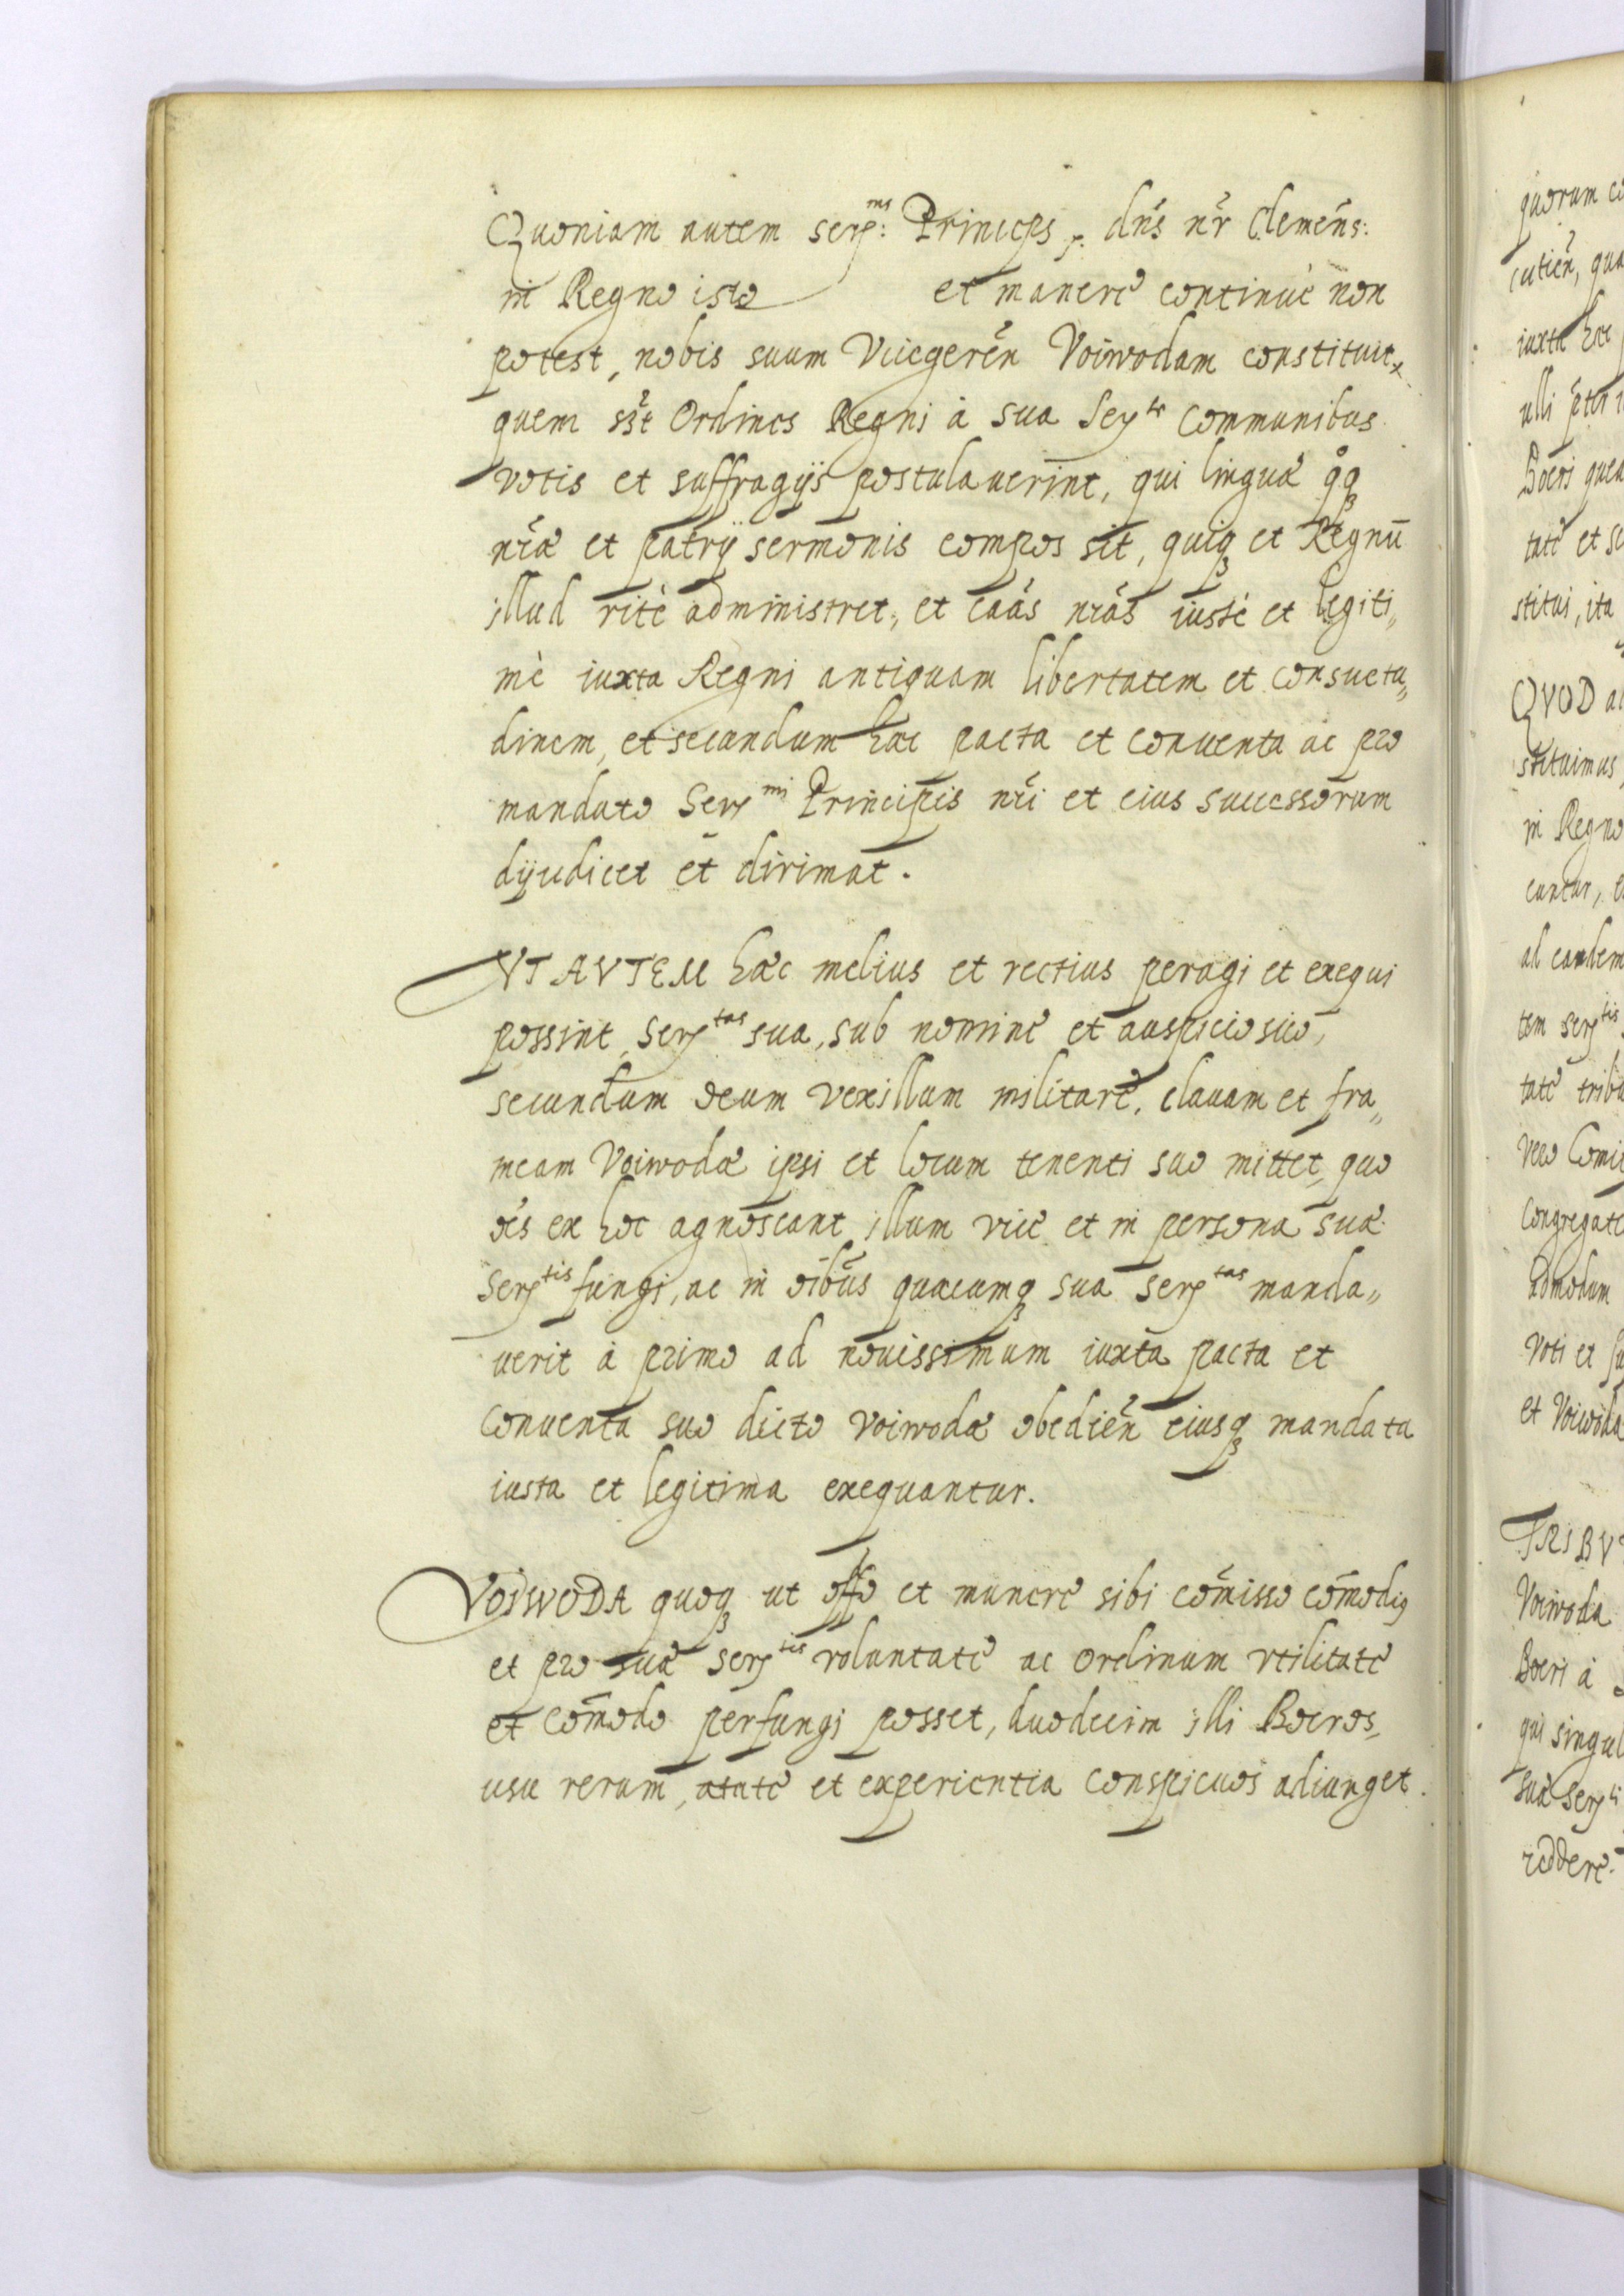 Quoniam autem sere^mus: Princeps p. dn̄s nr̄ Clemēns:
in Regno isto et manere continuè non
potest, nobis suum Vicegerēn Voiwodam constituit,
quem Ordines Regni à sua Ser^te communibus
votis et suffragijs postulauerint, qui linguæ qq₃
nr̄æ et patrij sermonis compos sit, quiq₃ et Regnū
illud ritè administret, et caās nr̄as iustè et legiti„
mè iuxta Regni antiquam libertatem et consuetu„
dinem, et secundum hæc pacta et conuenta ac pro
mandato Ser^mi Principis nr̄i et eius successorum
dijudicet et dirimat.
VT AVTEM hæc melius et rectius peragi et exequi
possint, Ser^tas sua, sub nomine et auspicio suo,
secundum deum vexillum militare, clauam et fra„
meam Voiwodæ ipsi et locum tenenti suo mittet, quo
oēs ex hoc agnoscant illum vice et in persona suæ
Ser^tis fungi, ac in oībus quæcumq₃ sua Ser^tas manda„
uerit à primo ad nouissimum iuxta pacta et
conuenta suo dicto Voiwodæ obediēn eiusq₃ mandata
iusta et legitima exequantur.
VOIWODA quoq₃ ut offo et munere sibi com̄isso com̄odiꝰ
et pro suæ Ser^tis voluntate ac Ordinum vtilitate
et com̄odo perfungi posset, duodecim illi Boeros,
usu rerum, ætate et experientia conspicuos adiunget.
quorum
cutiēn, qua
iuxta hæc
ulli
Boeri
tate et
stitui, ita
QVOD
stituimus
in Regno
cantur,
ad eandem
tem Ser^tis
tate
Vero
Congregat
admodum
Voti et
et Voiwoda
TRIBV
Voiwoda
Boeri à
qui singul
suæ Ser^ti
reddere.